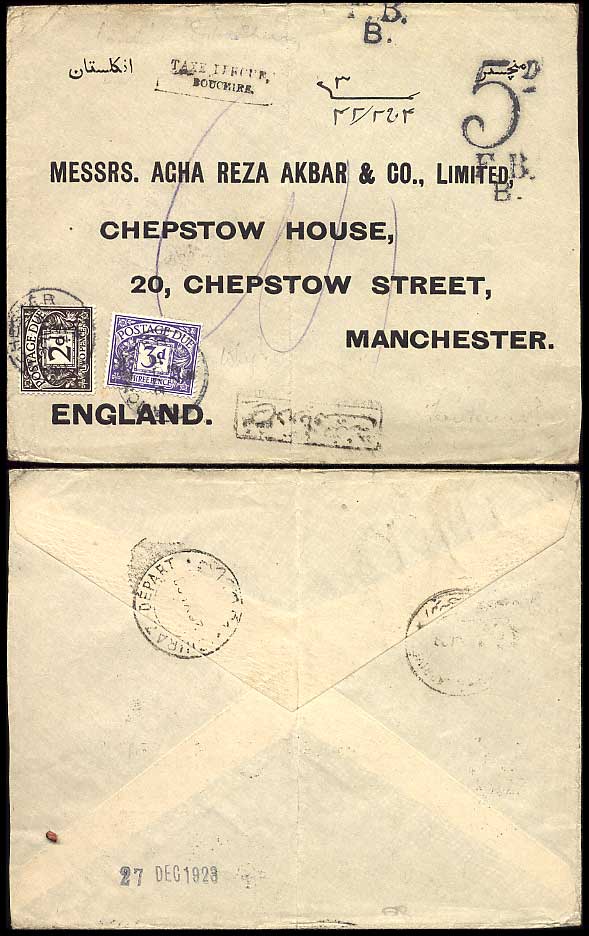 F.B.
B.
انگلستان
TAXE PERCUE,
BOUCHIRE.
۳
منچستر
5D
F.B.
B.
MESSRS. ACHA REZA AKBAR & CO., LIMITED,
CHEPSTOW HOUSE,
20, CHEPSTOW STREET,
MANCHESTER.
ENGLAND.
POSTAGE DUE
2d
TWO PENCE
POSTAGE DUE
3d
THREE PENCE
DEPART
27 DEC 1923